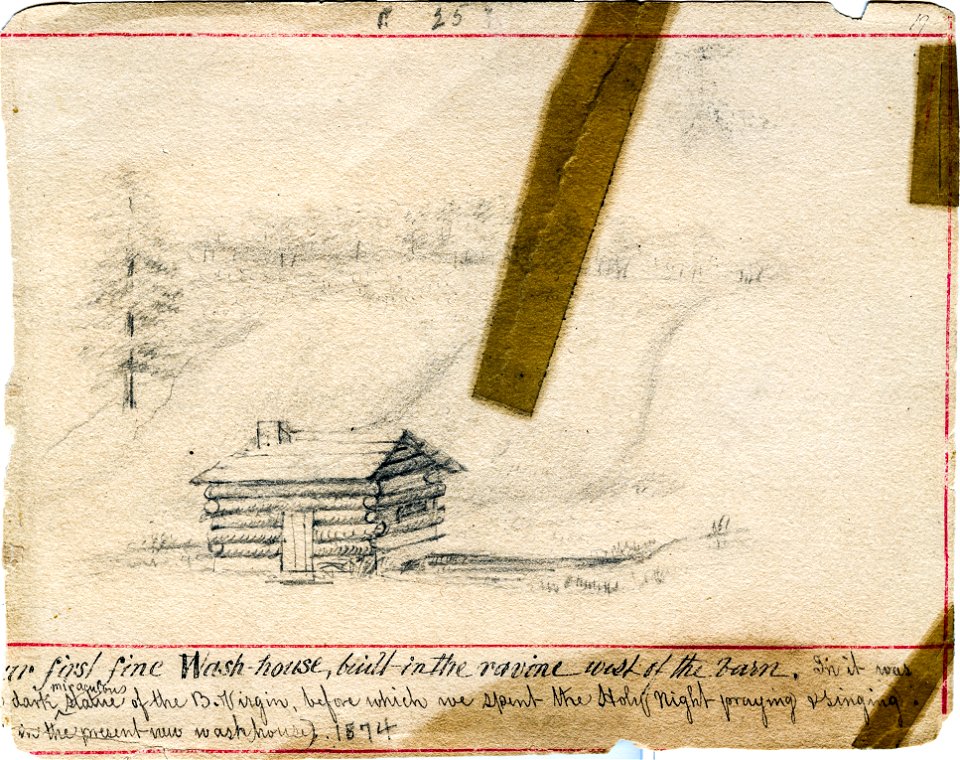 25
19
ur first fine Wash-house, built in the ravine west of the barn. In it was
dark miraculous statue of the B. Virgin, before which we spent the Holy Night praying & singing.
in the present new washhouse). 1874